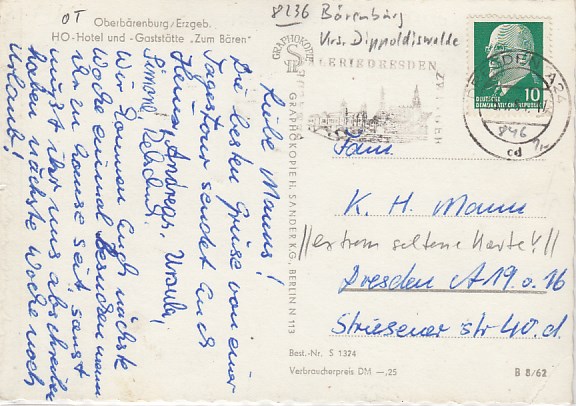 OT
Oberbärenburg/Erzgeb.
HO-Hotel und -Gaststätte „Zum Bären"
8236 Bärenburg
Krs. Dippoldiswalde
Liebe Manns!
Die besten Grüße von einer
Tagestour sendet Euch
Heinz, Andreas, Ursula,
Simone
Wir kommen Euch nächste
Woche einmal besuchen wenn
Ihr zu Hause seit, sonst
müßt Ihr uns abschreiben
haben nächste Woche noch
Urlaub!
GRAPHOKOPIE
GRAPHOKOPIE H. SANDER K.G., BERLIN N 113
GALERIE DRESDEN
ZWINGER
DRESDEN A24
846
cd
DEUTSCHE
DEMOKRATISCHE REPUBLIK
10
Fam.
K. H. Mann
//extrem seltene Karte!//
Dresden A19 o. 16
Striesener Str 40. d.
Best.-Nr. S 1324
Verbraucherpreis DM —,25
B 8/62